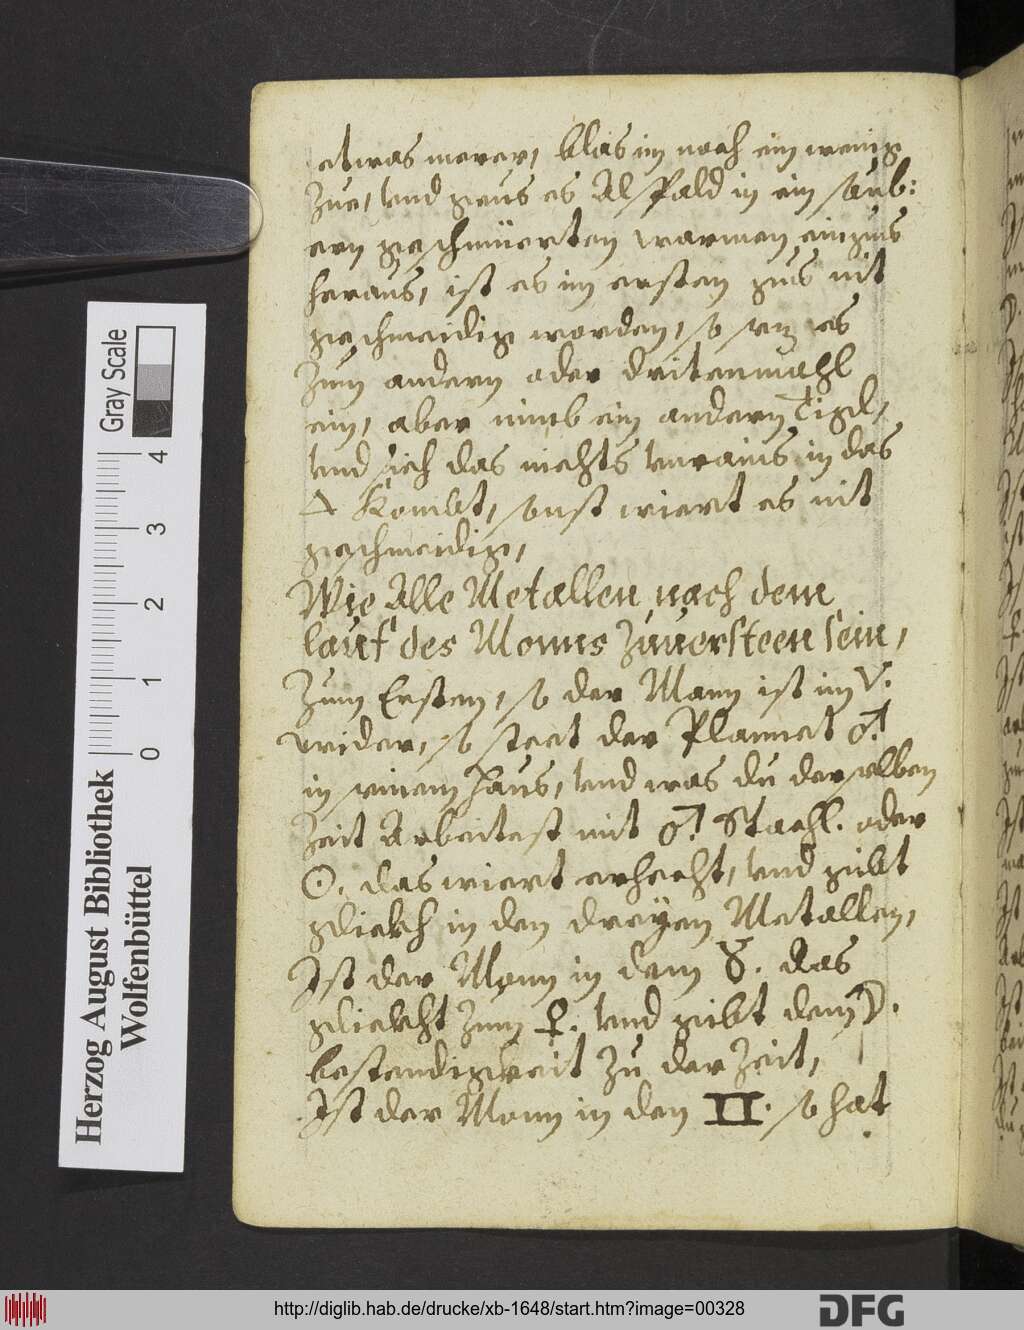 etwas merer, blas im noch ein wenig
Zue, vnd geus es Al Pald in ein saub:
ern geschmüerten warmen einguss
heraus, ist es im ersten gus nit
geschmeidig worden, so sez es
Zum andern oder dritenmahl
ein, aber nimb ein andern Tigl,
vnd sich das nichts vnrains in das
🜂 Kombt, sonst wiert es nit
geschmeidig,
Wie Alle Metallen nach dem
lauf des Monns Zuuersteen sein,
Zum Ersten, so der Mann ist im ♈.
wider, so steet der Plannet ♂.
in seinem Haus, vnd was du derselben
Zeit Arbeitest mit ♂. Stachl. oder
☉. das wiert erhecht, vnd gibt
glickh in den dreyen Metallen,
Ist der Monn in dem ♉. das
glickht Zum ♀. vnd gibt dem ☽.
bestendigkeit Zu der Zeit,
Ist der Monn in den ♊. so hat
Gray Scale
0 1 2 3 4
Herzog August Bibliothek
Wolfenbüttel
http://diglib.hab.de/drucke/xb-1648/start.htm?image=00328
DFG